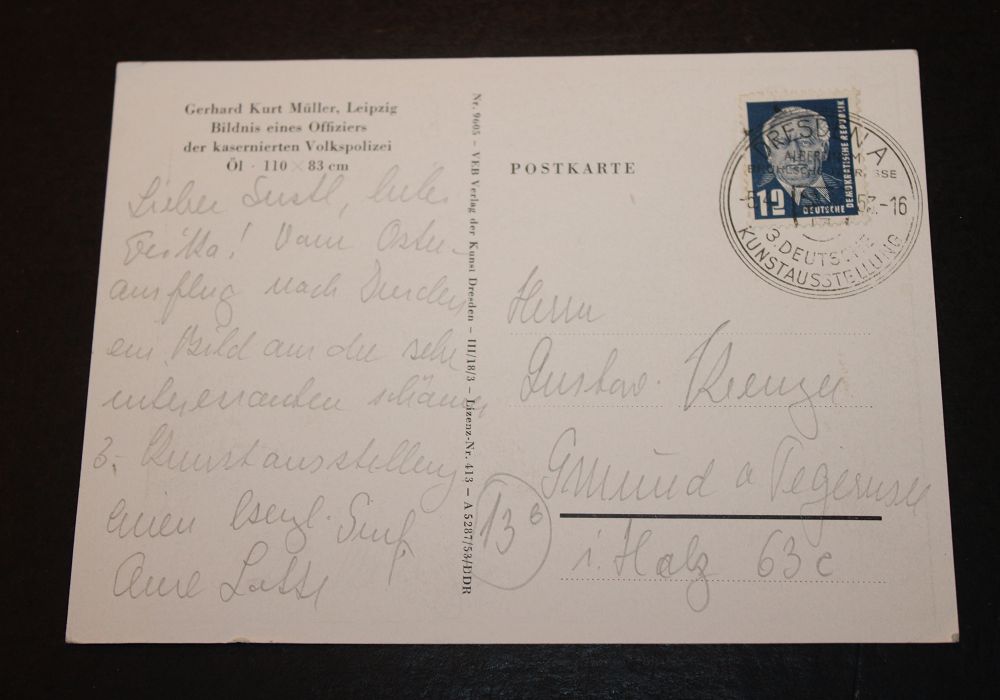 Gerhard Kurt Müller, Leipzig
Bildnis eines Offiziers
der kasernierten Volkspolizei
Öl · 110 × 83 cm
Lieber Gustl, liebe
Erika! Vom Oster-
ausflug nach Dresden
ein Bild aus der sehr
interessanten schönen
3. Kunstausstellung
einen herzl. Gruß
Eure Lotte
Nr. 9605 – VEB Verlag der Kunst Dresden – III/18/3 – Lizenz-Nr. 413 – A 5287/53/DDR
POSTKARTE
12 DEUTSCHE
DEMOKRATISCHE REPUBLIK
DRESDEN A
3. DEUTSCHE
KUNSTAUSSTELLUNG
-16
Herrn
Gustav
Gmund a Tegernsee
13b
i. Holz 63c